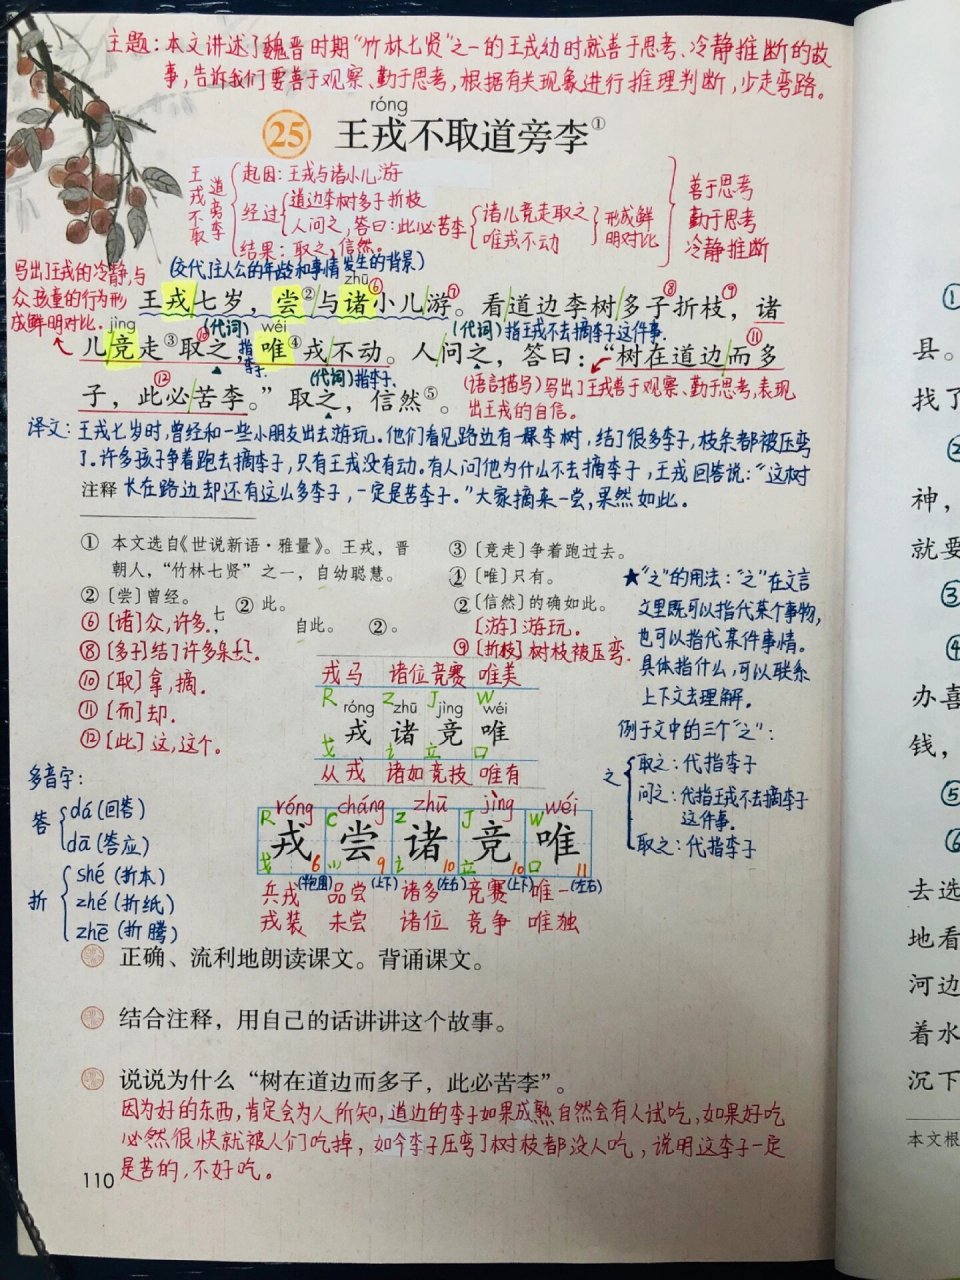 主题:本文讲述了魏晋时期“竹林七贤”之一的王戎幼时就善于思考、冷静推断的故
事,告诉我们要善于观察、勤于思考,根据有关现象进行推理判断,少走弯路。
róng
25 王戎不取道旁李①
王戎不取道旁李
起因:王戎与诸小儿游
经过
道边李树多子折枝
人问之,答曰:此必苦李
诸儿竞走取之
唯戎不动
形成鲜明对比
结果:取之,信然。
善于思考
勤于思考
冷静推断
写出了王戎的冷静,与
众孩童的行为形
成鲜明对比。
(交代了主人公的年龄和事情发生的背景)
zhū ⑥ ⑦ ⑧ ⑨
王戎七岁,尝②与诸小儿游。看道边李树多子折枝,诸
jìng ⑩ (代词)指李子. wéi (代词)指王戎不去摘李子这件事. ⑪
儿竞走③取之,唯④戎不动。人问之,答曰:“树在道边而多
⑫ (代词)指李子.
子,此必苦李。”取之,信然⑤。
(语言描写)写出了王戎善于观察、勤于思考,表现
出王戎的自信。
译文:王戎七岁时,曾经和一些小朋友出去游玩。他们看见路边有一棵李树,结了很多李子,枝条都被压弯
了。许多孩子争着跑去摘李子,只有王戎没有动。有人问他为什么不去摘李子,王戎回答说:“这树
长在路边却还有这么多李子,一定是苦李子。”大家摘来一尝,果然如此。
注释
① 本文选自《世说新语·雅量》。王戎,晋
朝人,“竹林七贤”之一,自幼聪慧。
②〔尝〕曾经。
③〔竞走〕争着跑过去。
〔唯〕只有。
〔信然〕的确如此。
七 ② 此。
自此。 ② 。
⑥[诸]众,许多.
〔游〕游玩.
⑧[多子]结了许多果实.
⑨[折枝]树枝被压弯.
⑩[取]拿,摘.
⑪[而]却.
⑫[此]这,这个.
★“之”的用法:“之”在文言
文里既可以指代某个事物,
也可以指代某件事情。
具体指什么,可以联系
上下文去理解。
例于文中的三个“之”:
之
取之:代指李子
问之:代指王戎不去摘李子
这件事.
取之:代指李子
戎马 诸位 竞赛 唯美
R Z J W
róng zhū jìng wéi
戎 诸 竞 唯
戈 讠 立 口
从戎 诸如 竞技 唯有
多音字:
答
dá(回答)
dā(答应)
折
shé(折本)
zhé(折纸)
zhē(折腾)
róng cháng zhū jìng wéi
R C Z J W
戎 尝 诸 竞 唯
戈 ⺌ 讠 立 口
6 9 10 10 11
(半包围) (上下) (左右) (上下) (左右)
兵戎 品尝 诸多 竞赛 唯一
戎装 未尝 诸位 竞争 唯独
正确、流利地朗读课文。背诵课文。
结合注释,用自己的话讲讲这个故事。
说说为什么“树在道边而多子,此必苦李”。
因为好的东西,肯定会为人所知,道边的李子如果成熟自然会有人试吃,如果好吃
必然很快就被人们吃掉,如今李子压弯了树枝都没人吃,说明这李子一定
是苦的,不好吃。
110
①
县。
找了
②
神,
就要
③
④
办喜
钱,
⑤
⑥
去选
地看
河边
着水
沉下
本文根